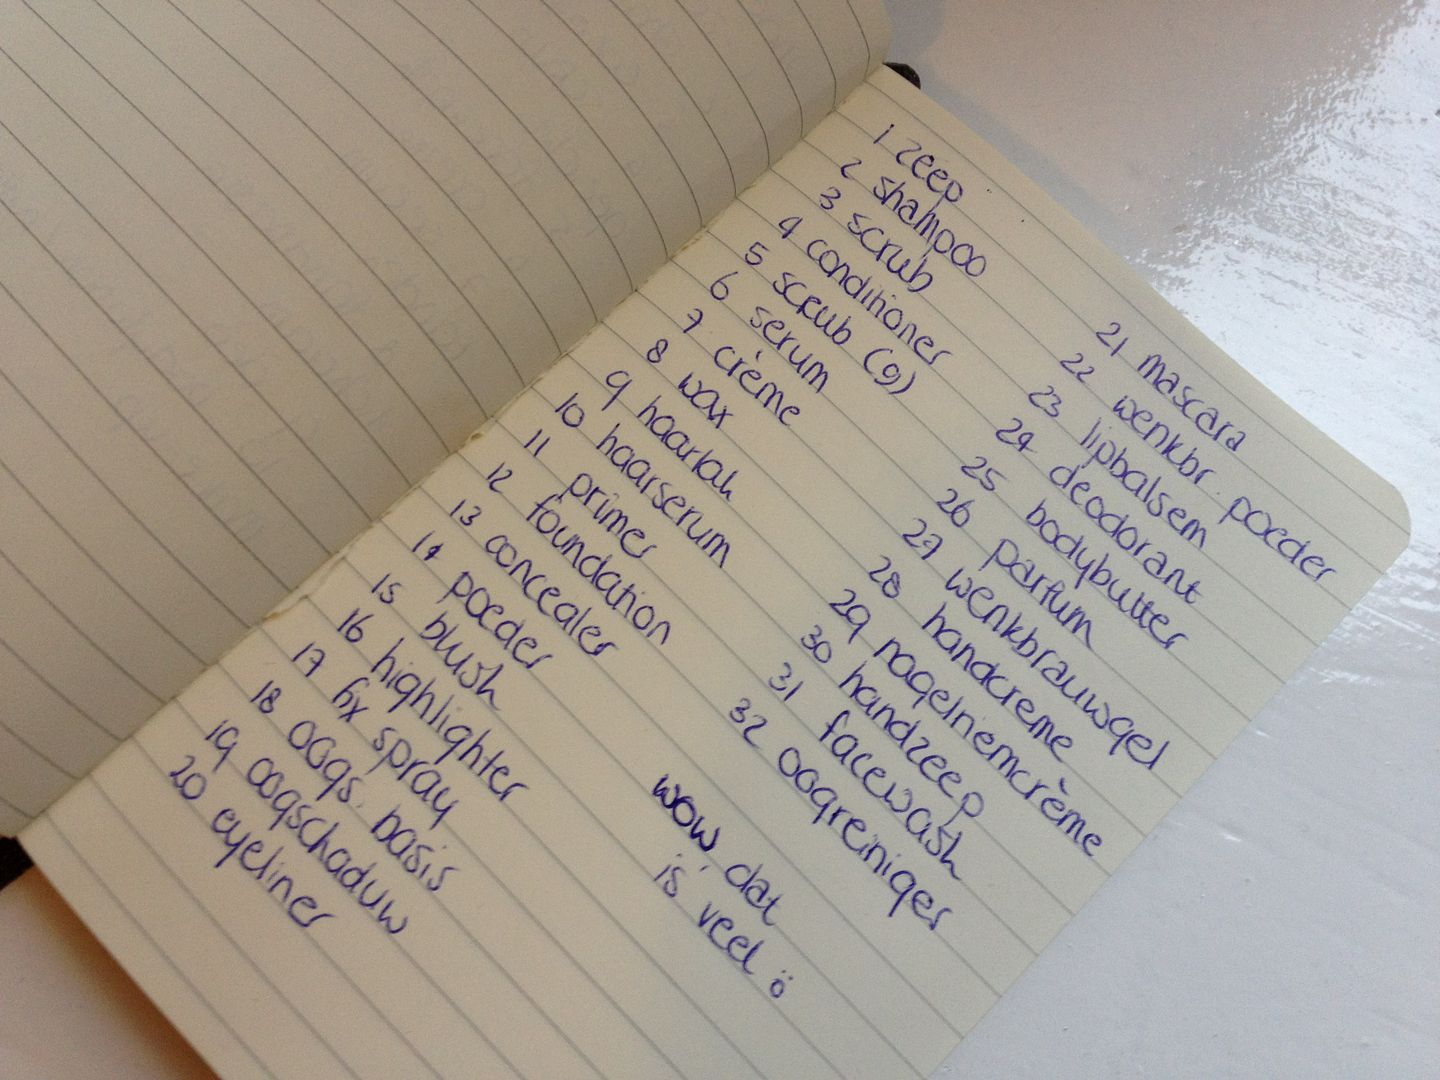 1 zeep
2 shampoo
3 scrub
4 conditioner
5 scrub (g)
6 serum
7 crème
8 wax
9 haarlak
10 haarserum
11 primer
12 foundation
13 concealer
14 poeder
15 blush
16 highlighter
17 fix spray
18 oogs. basis
19 oogschaduw
20 eyeliner
21 mascara
22 wenkbr. poeder
23 lipbalsem
24 deodorant
25 bodybutter
26 parfum
27 wenkbrauwgel
28 handcreme
29 nagelriemcrème
30 handzeep
31 facewash
32 oogreiniger
wow, dat
is veel ö